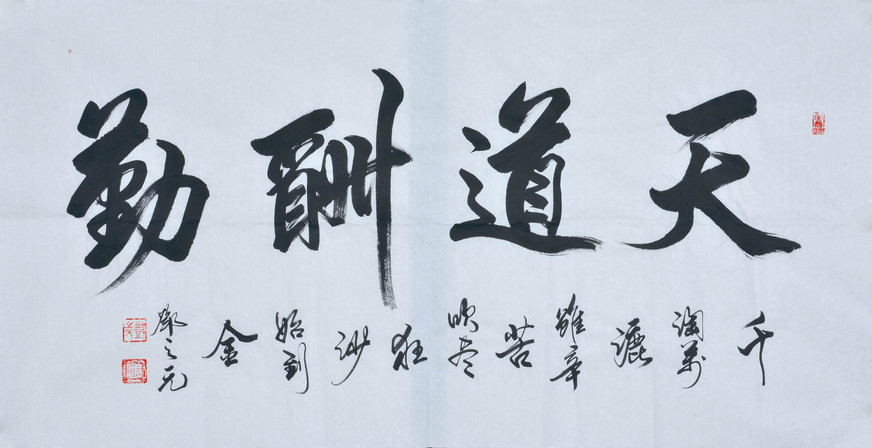 天道酬勤
千淘萬漉雖辛苦吹尽狂沙始到金
之元